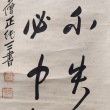 不失
必中
僧正三書